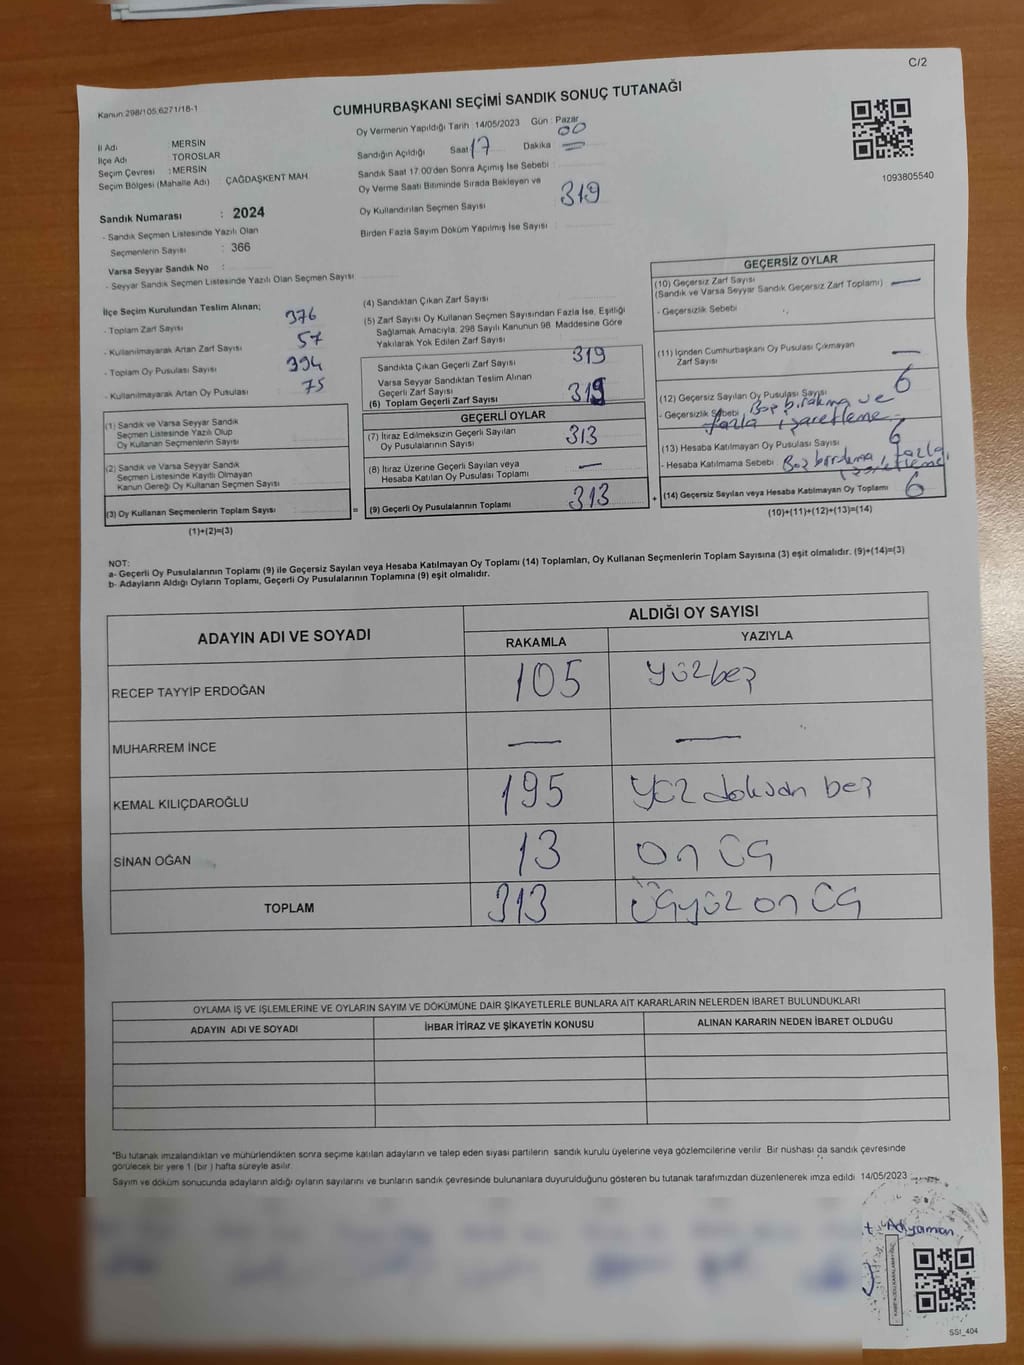 C/2
Kanun:298/105,6271/18-1
CUMHURBAŞKANI SEÇİMİ SANDIK SONUÇ TUTANAĞI
İl Adı : MERSİN
İlçe Adı : TOROSLAR
Seçim Çevresi : MERSİN
Seçim Bölgesi (Mahalle Adı) ÇAĞDAŞKENT MAH
Sandık Numarası : 2024
- Sandık Seçmen Listesinde Yazılı Olan
Seçmenlerin Sayısı : 366
Varsa Seyyar Sandık No :
- Seyyar Sandık Seçmen Listesinde Yazılı Olan Seçmen Sayısı
Oy Vermenin Yapıldığı Tarih : 14/05/2023 Gün : Pazar
Sandığın Açıldığı Saat 17 Dakika 00
Sandık Saat 17:00'den Sonra Açımış İse Sebebi :
Oy Verme Saati Bitiminde Sırada Bekleyen ve
Oy Kullandırılan Seçmen Sayısı 319
Birden Fazla Sayım Döküm Yapılmış İse Sayısı :
1093805540
İlçe Seçim Kurulundan Teslim Alınan;
- Toplam Zarf Sayısı 376
- Kullanılmayarak Artan Zarf Sayısı 57
- Toplam Oy Pusulası Sayısı 394
- Kullanılmayarak Artan Oy Pusulası 75
(1) Sandık ve Varsa Seyyar Sandık
Seçmen Listesinde Yazılı Olup
Oy Kullanan Seçmenlerin Sayısı
(2) Sandık ve Varsa Seyyar Sandık
Seçmen Listesinde Kayıtlı Olmayan
Kanun Gereği Oy Kullanan Seçmen Sayısı
(3) Oy Kullanan Seçmenlerin Toplam Sayısı =
(1)+(2)=(3)
(4) Sandıktan Çıkan Zarf Sayısı
(5) Zarf Sayısı Oy Kullanan Seçmen Sayısından Fazla İse, Eşitliği
Sağlamak Amacıyla, 298 Sayılı Kanunun 98. Maddesine Göre
Yakılarak Yok Edilen Zarf Sayısı
Sandıkta Çıkan Geçerli Zarf Sayısı 319
Varsa Seyyar Sandıktan Teslim Alınan
Geçerli Zarf Sayısı
(6) Toplam Geçerli Zarf Sayısı 319
GEÇERLİ OYLAR
(7) İtiraz Edilmeksizin Geçerli Sayılan
Oy Pusulalarının Sayısı 313
(8) İtiraz Üzerine Geçerli Sayılan veya
Hesaba Katılan Oy Pusulası Toplamı —
(9) Geçerli Oy Pusulalarının Toplamı 313 +
GEÇERSİZ OYLAR
(10) Geçersiz Zarf Sayısı
(Sandık ve Varsa Seyyar Sandık Geçersiz Zarf Toplamı) —
- Geçersizlik Sebebi
(11) İçinden Cumhurbaşkanı Oy Pusulası Çıkmayan
Zarf Sayısı —
(12) Geçersiz Sayılan Oy Pusulası Sayısı 6
- Geçersizlik Sebebi Boş bırakma ve
fazla işaretleme
(13) Hesaba Katılmayan Oy Pusulası Sayısı 6
- Hesaba Katılmama Sebebi Boş bırakma, fazla
işaretleme
(14) Geçersiz Sayılan veya Hesaba Katılmayan Oy Toplamı 6
(10)+(11)+(12)+(13)=(14)
NOT:
a- Geçerli Oy Pusulalarının Toplamı (9) ile Geçersiz Sayılan veya Hesaba Katılmayan Oy Toplamı (14) Toplamları, Oy Kullanan Seçmenlerin Toplam Sayısına (3) eşit olmalıdır. (9)+(14)=(3)
b- Adayların Aldığı Oyların Toplamı, Geçerli Oy Pusulalarının Toplamına (9) eşit olmalıdır.
ADAYIN ADI VE SOYADI ALDIĞI OY SAYISI
RAKAMLA YAZIYLA
RECEP TAYYİP ERDOĞAN 105 yüzbeş
MUHARREM İNCE — —
KEMAL KILIÇDAROĞLU 195 yüz doksan beş
SİNAN OĞAN 13 on üç
TOPLAM 313 üçyüz on üç
OYLAMA İŞ VE İŞLEMLERİNE VE OYLARIN SAYIM VE DÖKÜMÜNE DAİR ŞİKAYETLERLE BUNLARA AİT KARARLARIN NELERDEN İBARET BULUNDUKLARI
ADAYIN ADI VE SOYADI İHBAR İTİRAZ VE ŞİKAYETİN KONUSU ALINAN KARARIN NEDEN İBARET OLDUĞU
*Bu tutanak imzalandıktan ve mühürlendikten sonra seçime katılan adayların ve talep eden siyasi partilerin sandık kurulu üyelerine veya gözlemcilerine verilir. Bir nushası da sandık çevresinde
görülecek bir yere 1 (bir) hafta süreyle asılır.
Sayım ve döküm sonucunda adayların aldığı oyların sayılarını ve bunların sandık çevresinde bulunanlara duyurulduğunu gösteren bu tutanak tarafımızdan düzenlenerek imza edildi. 14/05/2023
Adıyaman
SSI_404